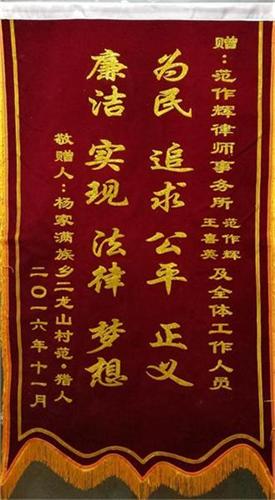 赠：范作辉律师事务所 范作辉 王喜英 及全体工作人员
为民 追求 公平 正义
廉洁 实现 法律 梦想
敬赠人：杨家满族乡二龙山村范·猎人
二〇一六年十一月